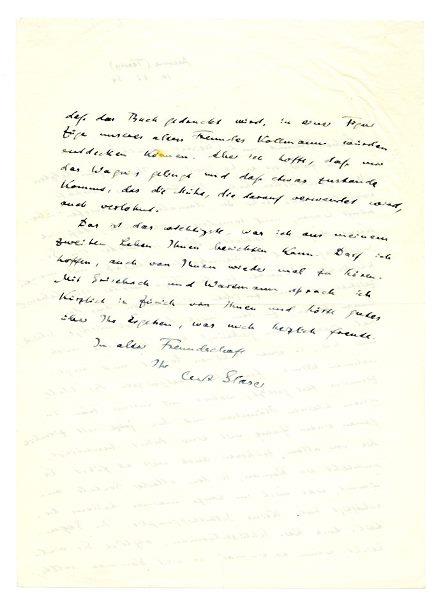 daß das Buch gedruckt wird, in einer Figur
Züge unseres alten Freundes Kollmann würden
entdecken können. Aber ich hoffe, daß mir
das Wagnis gelingt und daß etwas zustande
kommt, das die Mühe, die darauf verwendet wird,
auch verlohnt.
Das ist das wichtigste, was ich aus meinem
zweiten Leben Ihnen berichten kann. Darf ich
hoffen, auch von Ihnen wieder mal zu hören.
Mit und sprach ich
kürzlich in Zürich von Ihnen und hörte gutes
über Ihr Ergehen, was mich herzlich freute.
In alter Freundschaft
Ihr